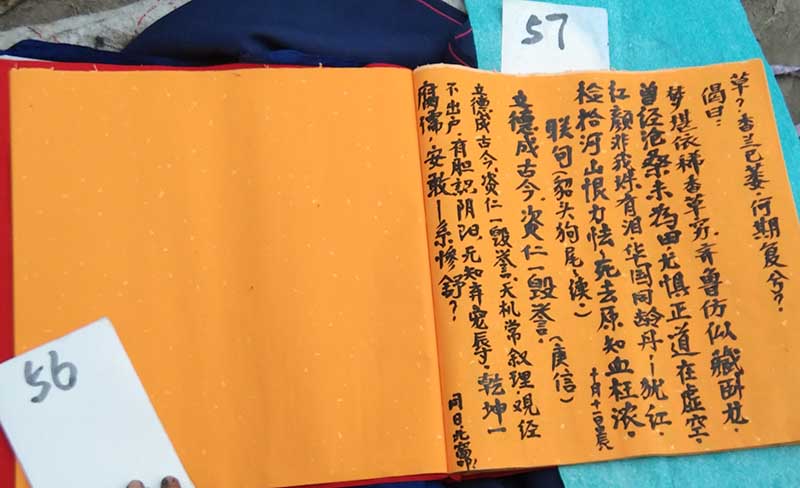 57
草？香兰已萎，何期复兮？
偈曰：
梦堪依稀香草穷，齐鲁仿似藏卧龙，
曾经沧桑未为田，无惧正道在虚空，
红颜非我珠有泪，华国同龄丹一犹红，
检拾河山恨力怯，死去原知血枉浓。
十月十一日晨
联句（貂头狗尾一续。）
立德成古今，资仁一毁誉。（庾信）
立德成古今，资仁一毁誉，天机常叙理，观经
不出户，有胆识阴阳，无知弃宠辱，乾坤一
腐儒，安敢一系惨舒？
同日
56